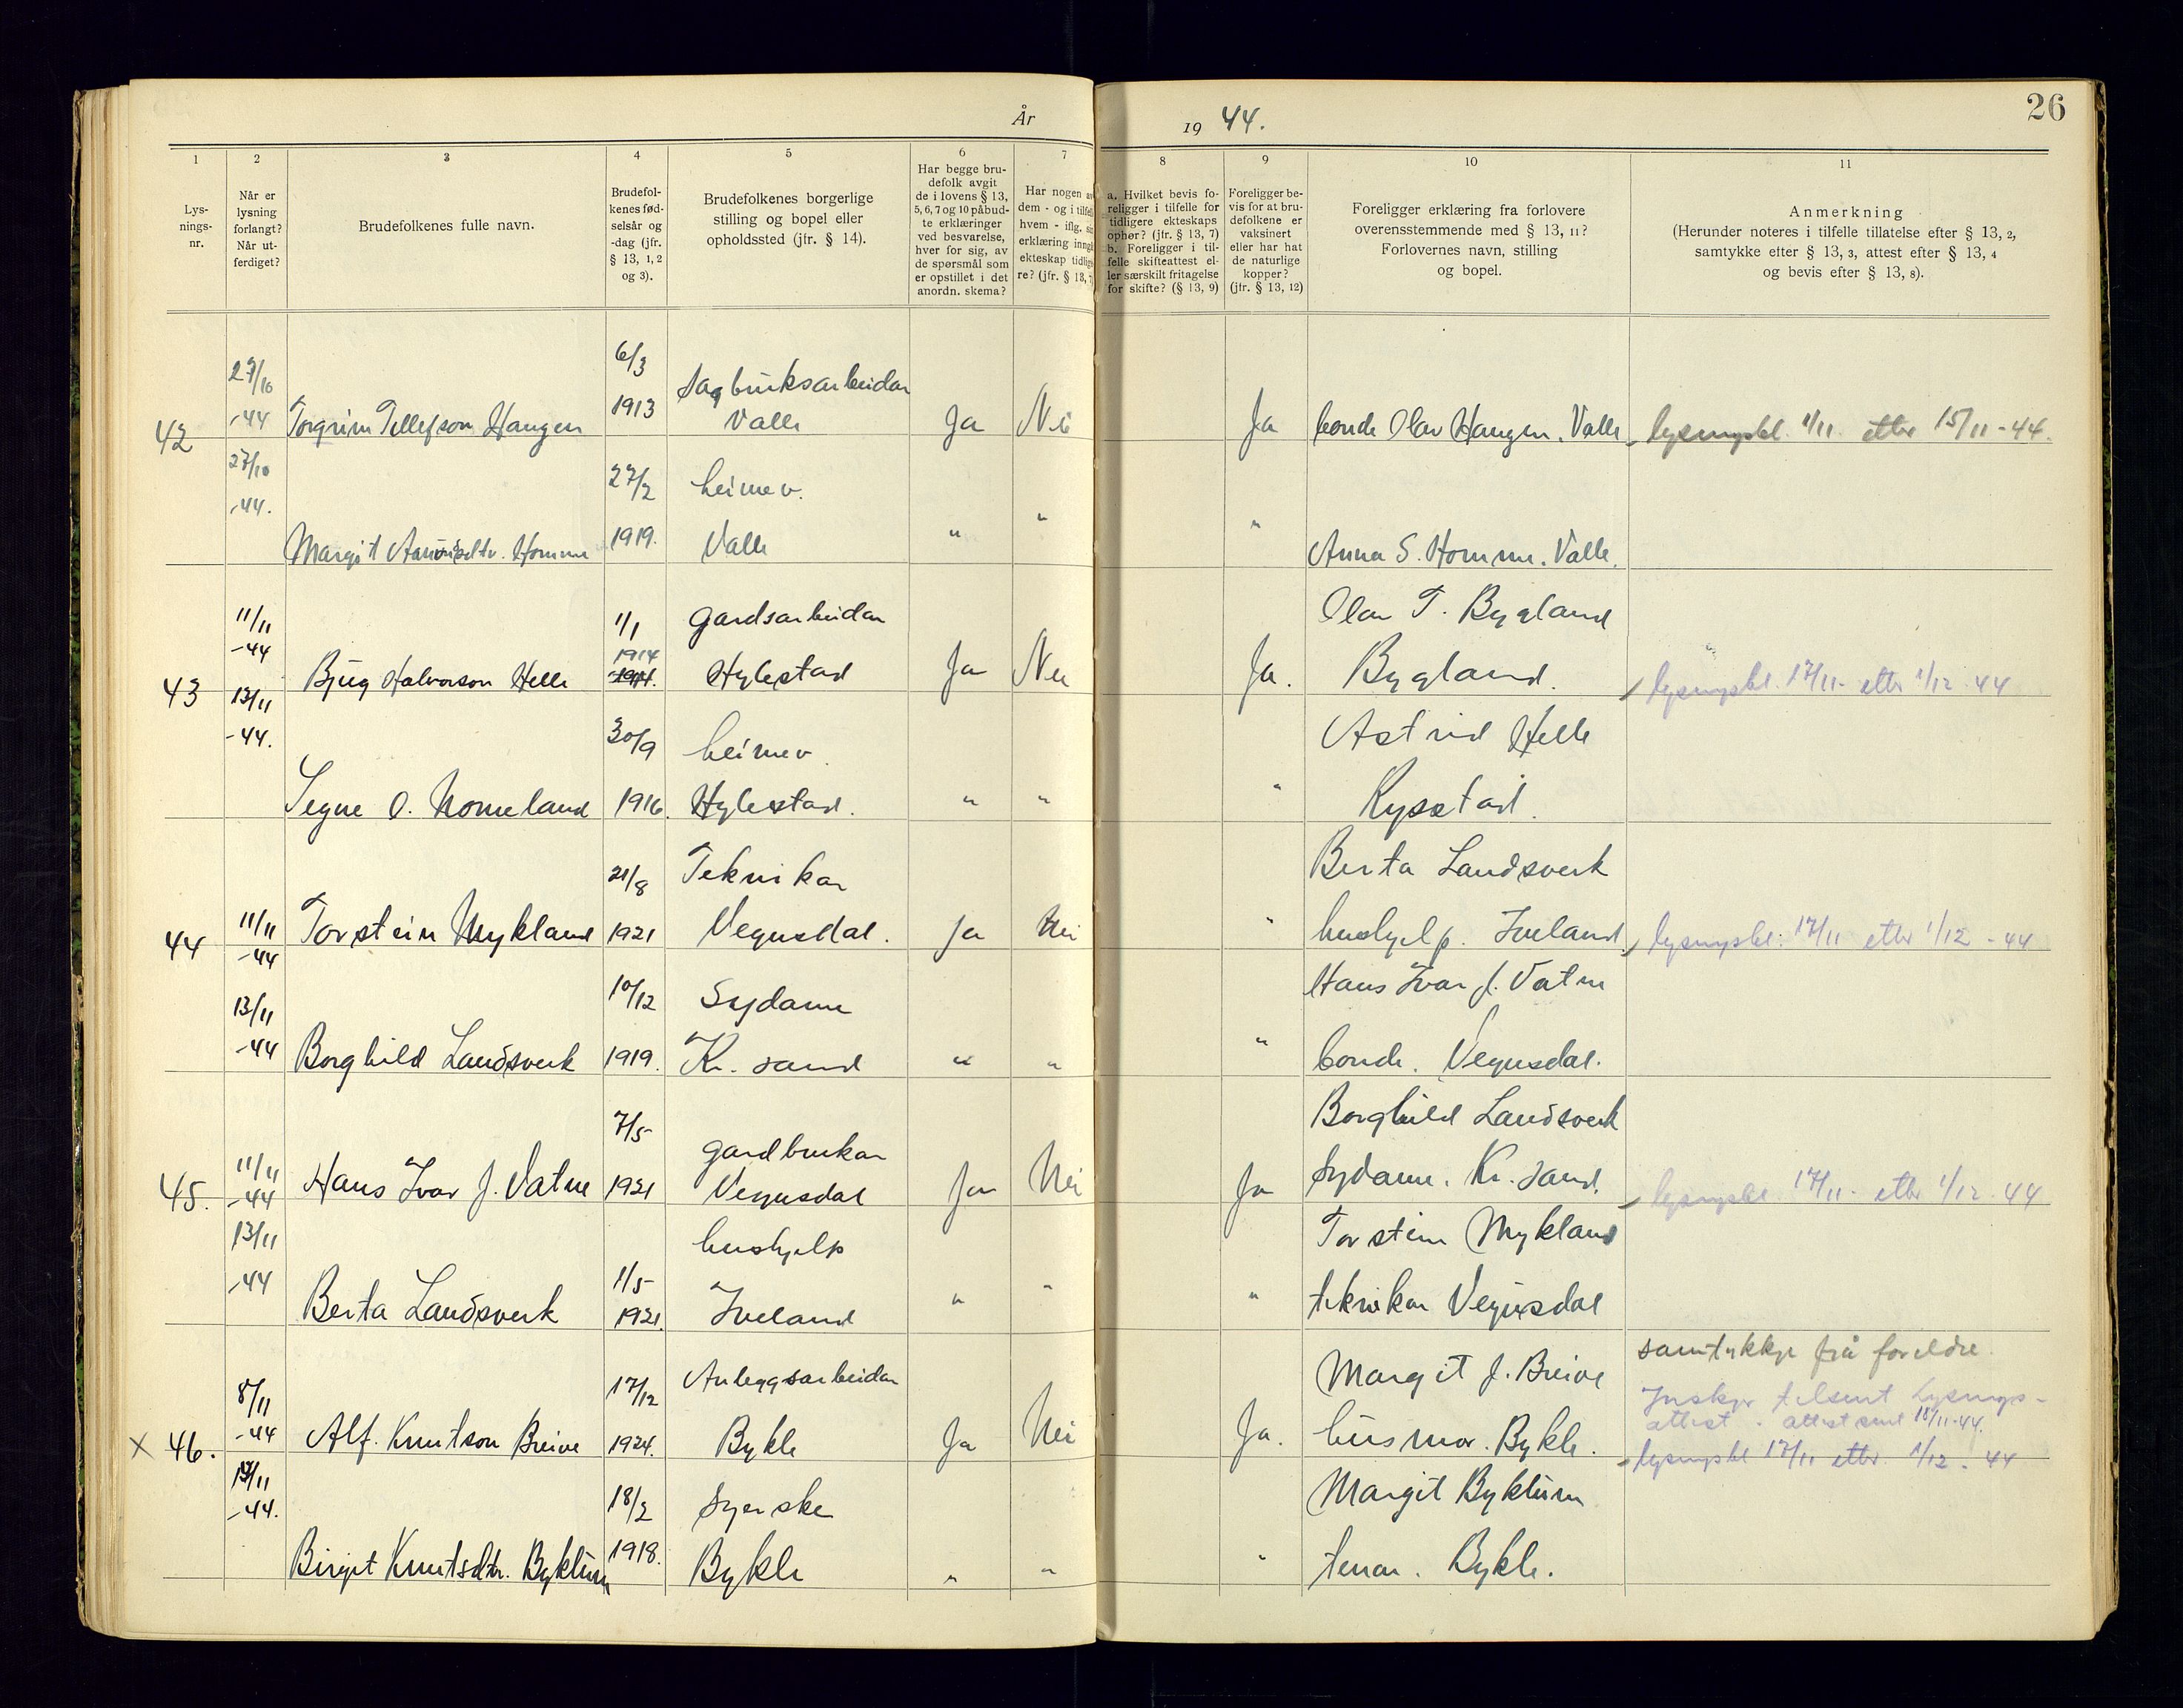 År 1944.
26
1
Lys-
nings-
nr.
2
Når er
lysning
forlangt?
Når ut-
ferdiget?
3
Brudefolkenes fulle navn.
4
Brudefol-
kenes fød-
selsår og
-dag (jfr.
§ 13, 1, 2
og 3).
5
Brudefolkenes borgerlige
stilling og bopel eller
opholdssted (jfr. § 14).
6
Har begge bru-
defolk avgit
de i lovens § 13,
5, 6, 7 og 10 påbud-
te erklæringer
ved besvarelse,
hver for sig, av
de spørsmål som
er opstillet i det
anordn. skema?
7
Har nogen av
dem - og i tilfelle
hvem - iflg. sin
erklæring inngått
ekteskap tidlige-
re? (jfr. § 13, 7)
8
a. Hvilket bevis fo-
religger i tilfelle for
tidligere ekteskaps
ophør? (jfr. § 13, 7)
b. Foreligger i til-
felle skifteattest el-
ler særskilt fritagelse
for skifte? (§ 13, 9)
9
Foreligger be-
vis for at bru-
defolkene er
vaksinert
eller har hat
de naturlige
kopper?
(jfr. § 13, 12)
10
Foreligger erklæring fra forlovere
overensstemmende med § 13, 11?
Forlovernes navn, stilling
og bopel.
11
Anmerkning
(Herunder noteres i tilfelle tillatelse efter § 13, 2,
samtykke efter § 13, 3, attest efter § 13, 4
og bevis efter § 13, 8).
42
27/10
-44
Torgrim Tellefson Haugen
6/3
1913
Sagbruksarbeidar
Valle
Ja
Nei
Ja
bonde Olav Haugen. Valle
lysningsbl. 1/11 etter 15/11-44.
27/10
-44.
Margit Homme
27/2
1919.
heimev.
Valle
"
"
"
Anna S. Homme. Valle.
43
11/11
-44
Bjug Halvorson Helle
1/1
1914
gardsarbeidar
Hylestad
Ja
Nei
Ja.
Olav T. Bygland
Bygland.
lysningsbl. 17/11- etter 1/12-44
13/11
-44.
Segne O. Nomeland
30/9
1916.
heimev.
Hylestad.
"
"
"
Astrid Helle
Rysstad.
44
11/11
-44
Torstein Mykland
21/8
1921
Teknikar
Vegusdal.
Ja
Nei
"
Berta Landsverk
hushjelp. Iveland.
lysningsbl. 17/11 etter 1/12-44
13/11
-44
Borghild Landsverk
10/12
1919.
Sydame
Kr. sand
"
"
"
Hans Ivar J. Vatne
bonde. Vegusdal.
45.
11/11
-44
Hans Ivar J. Vatne
7/5
1921
gardbrukar
Vegusdal
Ja
Nei
Ja
Borghild Landsverk
Sydame. Kr. sand.
lysningsbl. 17/11- etter 1/12-44
13/11
-44
Berta Landsverk
1/5
1921.
hushjelp
Iveland
"
"
"
Torstein Mykland
teknikar Vegusdal
x 46.
8/11
-44
Alf. Knutson Breive
17/12
1924.
Anleggsarbeidar
Bykle
Ja
Nei
Ja.
Margit J. Breive
husmor. Bykle.
samtykkje frå foreldre.
Ynskjer tilsent lysnings-
attest. attest sent 18/11-44.
lysningsbl 17/11 etter 1/12-44
-44.
Birgit Knutsdtr. Byklum
18/2
1918.
Syerske
Bykle
"
"
"
Margit Byklum
tenar. Bykle.